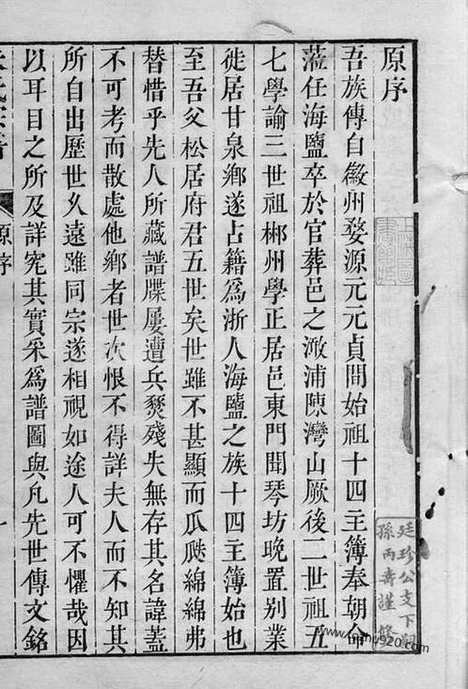 原序
吾族傳自徽州婺源元元貞間始祖十四主簿奉朝命
蒞任海鹽卒於官葬邑之澉浦陳灣山厥後二世祖五
七學諭三世祖郴州學正居邑東門聞琴坊晚置别業
徙居甘泉鄉遂占籍爲浙人海鹽之族十四主簿始也
至吾父松居府君五世矣世雖不甚顯而瓜瓞綿綿弗
替惜乎先人所藏譜牒屢遭兵燹殘失無存其名諱蓋
不可考而散處他鄉者世次恨不得詳夫人而不知其
所自出歷世久遠雖同宗遂相視如途人可不懼哉因
以耳目之所及詳究其實采爲譜圖與凡先世傳文銘
原序
一
廷珍公支下嗣
孫丙壽謹修